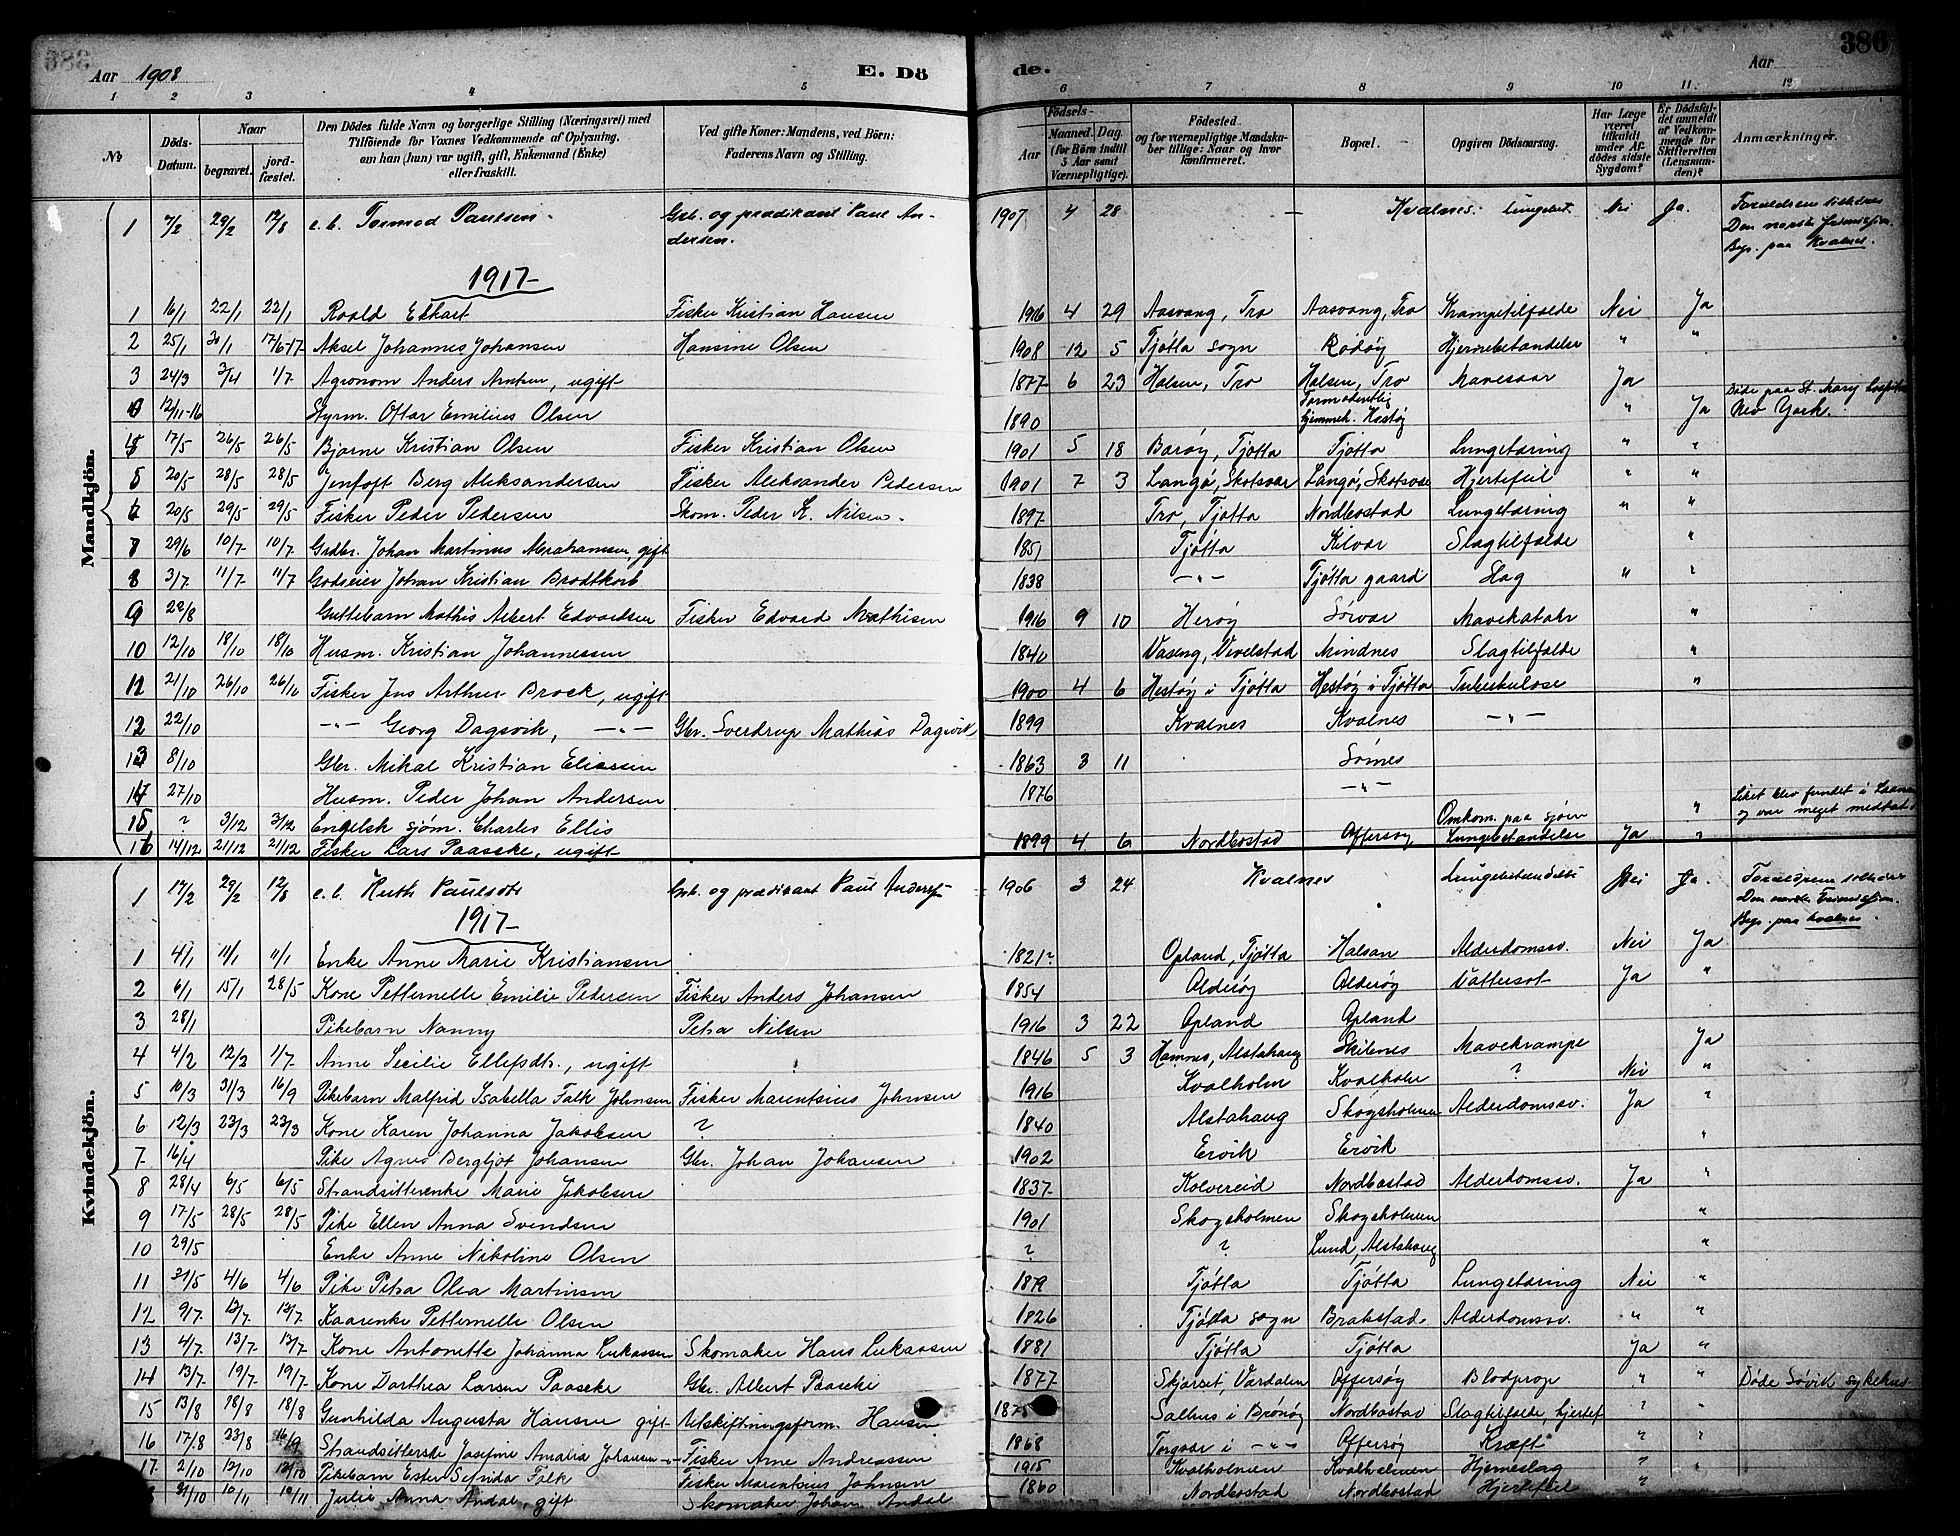 Aar 1908 E. Dö de. Aar 386
1 2 3 4 5 6 7 8 9 10 11 12
№ Döds-Datum. Naar begravet. jordfæstet. Den Dödes fulde Navn og borgerlige Stilling (Næringsvei) med Tilföiende for Voxnes Vedkommende af Oplysning, om han (hun) var ugift, gift, Enkemand (Enke) eller fraskilt. Ved gifte Koner: Mandens, ved Börn: Faderens Navn og Stilling. Födsels- Aar Maaned. Dag. (for Börn indtil 3 Aar samt Værnepligtige). Födested. og for værnepligtige Mandskaber tillige: Naar og hvor konfirmeret. Bopæl. Opgiven Dödsaarsag. Har Læge været tilkaldt under Afdödes sidste Sygdom? Er Dödsfaldet anmeldt af Vedkommende for Skifteretten (Lensmanden)? Anmærkninger.
Mandkjön.
1 7/2 29/2 12/8 e.b. Tormod Paulsen. Grb. og prædikant Paul Andersen. 1907 4 28 — Kvalnes. Lungebet. Nei Ja. Forældrene Den norske Begr. paa Kvalnes.
1917
1 16/1 22/1 22/1 Roald Ekhart Fisker Kristian Hansen 1916 4 29 Aasvang, Tro Aasvang, Tro Krampetilfælde Nei Ja
2 25/1 30/1 17/6-17 Aksel Johannes Johansen Hansine Olsen 1908 12 5 Tjøtta sogn Rødøy Hjernebetændelse " "
3 24/3 3/4 1/7 Agronom Anders Arntsen, ugift 1877 6 23 Halsen, Tro Halsen, Tro Mavesaar Ja
12/11-16 Styrm. Ottar Emilius Olsen 1890 Formodentlig hjemmeh. Hestøy " Ja Døde paa St. Mary hospital New York.
4 17/5 26/5 26/5 Bjarne Kristian Olsen Fisker Kristian Olsen 1901 5 18 Barøy, Tjøtta Tjøtta Lungetæring " "
5 20/5 28/5 28/5 Jentoft Berg Aleksandersen Fisker Aleksander Pedersen 1901 7 3 Langø, Skotsvær Langø, Skotsvær Hjertefeil " "
6 20/5 29/5 29/5 Fisker Peder Pedersen Skom. Peder K. Nilsen. 1897 Tro, Tjøtta Nordbostad Lungetæring " "
7 29/6 10/7 10/7 Grdbr. Johan Martinus Abrahamsen, gift 1851 Tjøtta Kilvær Slagtilfælde "
8 3/7 11/7 11/7 Godseier Johan Kristian Brodtkorb 1838 —"— Tjøtta gaard Slag " "
9 22/8 Guttebarn Mathis Albert Edvardsen Fisker Edvard Mathisen 1916 9 10 Herøy Sørvær Mavekatahr "
10 12/10 18/10 18/10 Husm. Kristian Johannessen 1840 Vaseng, Vevelstad Mindnes Slagtilfælde "
11 21/10 26/10 26/10 Fisker Jens Arthur Brock, ugift 1900 4 6 Hestøy i Tjøtta Hestøy i Tjøtta Tuberkulose "
12 22/10 —"— Georg Dagsvik, —"— Gbr. Sverdrup Mathias Dagsvik 1899 Kvalnes Kvalnes —"—
13 8/10 Gbr. Mikal Kristian Eliassen 1863 3 11 Sørnes
14 27/10 Husm. Peder Johan Andersen 1876 —"—
15 ? 3/12 3/12 Engelsk sjøm. Charles Ellis Omkom. paa sjøen " Liket blev fundet i og var meget medtat
16 14/12 21/12 21/12 Fisker Lars Paascke, ugift 1899 4 6 Nordbostad Offersøy Lungebetændelse Ja "
Kvindekjön.
1 17/2 29/2 12/8 e.b. Ruth Paulsdtr Grb. og prædikant Paul Anders. 1906 3 24 Kvalnes Lungebetændelse Nei Ja. Forældrene Den norske Begr. paa Kvalnes.
1917
1 4/1 11/1 11/1 Enke Anne Marie Kristiansen 1821? Opland, Tjøtta Halsan Alderdomssv. Nei Ja
2 6/1 15/1 28/5 Kone Petternelle Emilie Pedersen Fisker Anders Johansen 1854 Alderøy Alderøy Vattersot Ja "
3 28/1 Pikebarn Nanny Petra Nilsen 1916 3 22 Opland Opland
4 4/2 12/2 1/7 Anne Secilie Ellefsdtr., ugift 1846 5 3 Hamnes, Alstahaug Skilnes Mavekrampe Ja
5 10/3 31/3 16/9 Pikebarn Malfrid Isabella Falk Johnsen Fisker Marentsius Johnsen 1916 Kvalholm Kvalholm ? Nei "
6 12/3 23/3 23/3 Kone Karen Johanna Jakobsen ? 1840 Alstahaug Skogsholmen Alderdomssv. Ja "
7 16/4 Pike Agnes Bergljot Johansen Gbr. Johan Johansen 1902 Ervik Ervik "
8 28/4 6/5 6/5 Strandsitterenke Marie Jakobsen 1837 Kolvereid Nordbostad Alderdomssv. Ja "
9 17/5 28/5 28/5 Pike Ellen Anna Svendsen 1901 Skogsholmen Skogsholmen "
10 29/5 Enke Anne Nikoline Olsen ? ? Lund, Alstahaug "
11 31/5 4/6 4/6 Pike Petra Olea Martinsen 1879 Tjøtta Tjøtta Lungetæring Nei "
12 9/7 13/7 13/7 Kaarenke Petternelle Olsen 1826 Tjøtta sogn Brakstad Alderdomssv. " "
13 4/7 13/7 13/7 Kone Antonette Johanna Lukassen Skomaker Hans Lukassen 1881 Tjøtta Tjøtta Ja "
14 13/7 19/7 19/7 Kone Dorthea Larsen Paascke Gbr. Albert Paascke 1877 Skjørset, Værdalen Offersøy Blodprop " " Døde Søvik sykehus
15 13/8 18/8 18/8 Gunhilda Augusta Hansen gift Utskiftningsform. Hansen 1875 Salhus i Brønøy Nordbostad Slagtilfælde, hjertef " "
16 17/8 23/8 16/9 Strandsitterske Josefine Amalia Johansen —"— Fisker Arne Andreassen 1868 Torgvær i —"— Offersøy Kræft " "
17 2/10 12/10 12/10 Pikebarn Ester Sefrida Falk Fisker Marentsius Johnsen 1915 Kvalholmen Kvalholmen Hjerneslag "
31/10 10/11 10/11 Julie Anna Andal, gift Skomaker Johan Andal 1860 Nordbostad Nordbostad Hjertefeil "